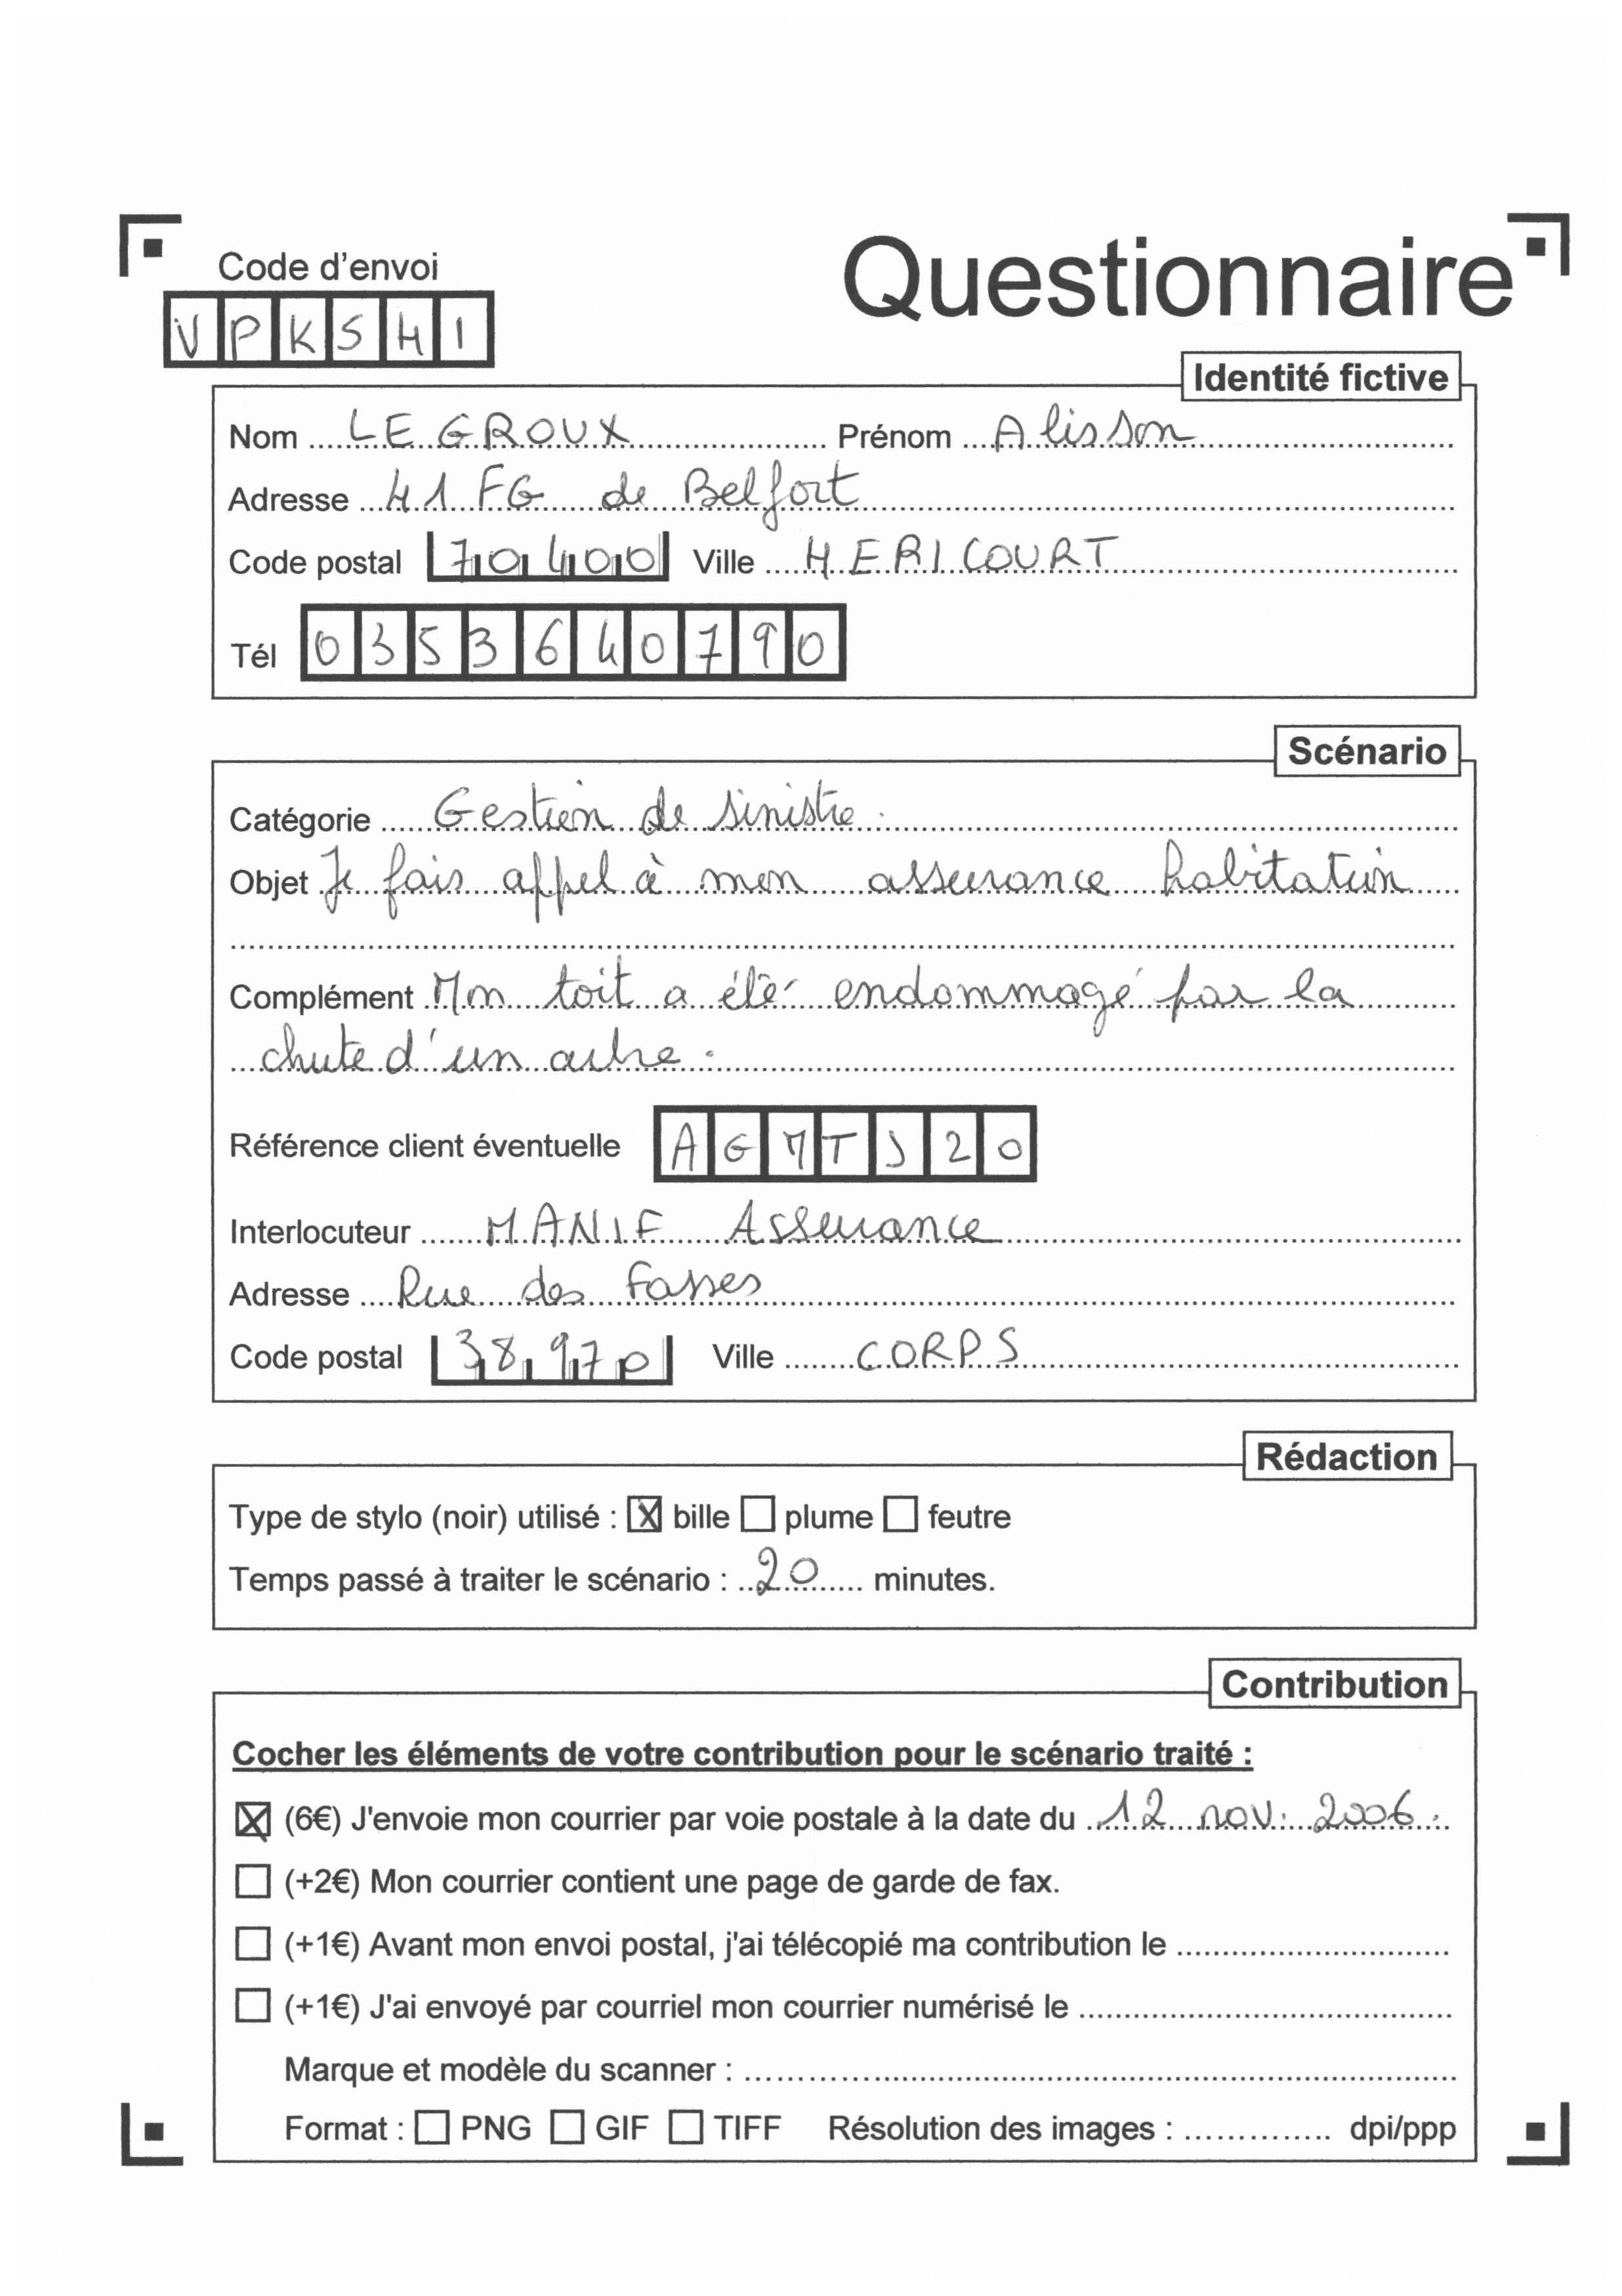 Code d'envoi
Questionnaire
VPKSH1
Identité fictive
Nom LE GROUX Prénom Alisson
Adresse 41 FG de Belfort
Code postal 70400 Ville HERICOURT
Tél 0353640790
Scénario
Catégorie Gestion de sinistre.
Objet Je fais appel à mon assurance habitation
Complément Mon toit a été endommagé par la
chute d'un arbre.
Référence client éventuelle AGMTJ20
Interlocuteur MANIF Assurance
Adresse Rue des Fasses
Code postal 38970 Ville CORPS
Rédaction
Type de stylo (noir) utilisé : ☒ bille ☐ plume ☐ feutre
Temps passé à traiter le scénario : 20 minutes.
Contribution
Cocher les éléments de votre contribution pour le scénario traité :
☒ (6€) J'envoie mon courrier par voie postale à la date du 12 nov. 2006.
☐ (+2€) Mon courrier contient une page de garde de fax.
☐ (+1€) Avant mon envoi postal, j'ai télécopié ma contribution le
☐ (+1€) J'ai envoyé par courriel mon courrier numérisé le
Marque et modèle du scanner :
Format : ☐ PNG ☐ GIF ☐ TIFF Résolution des images : dpi/ppp